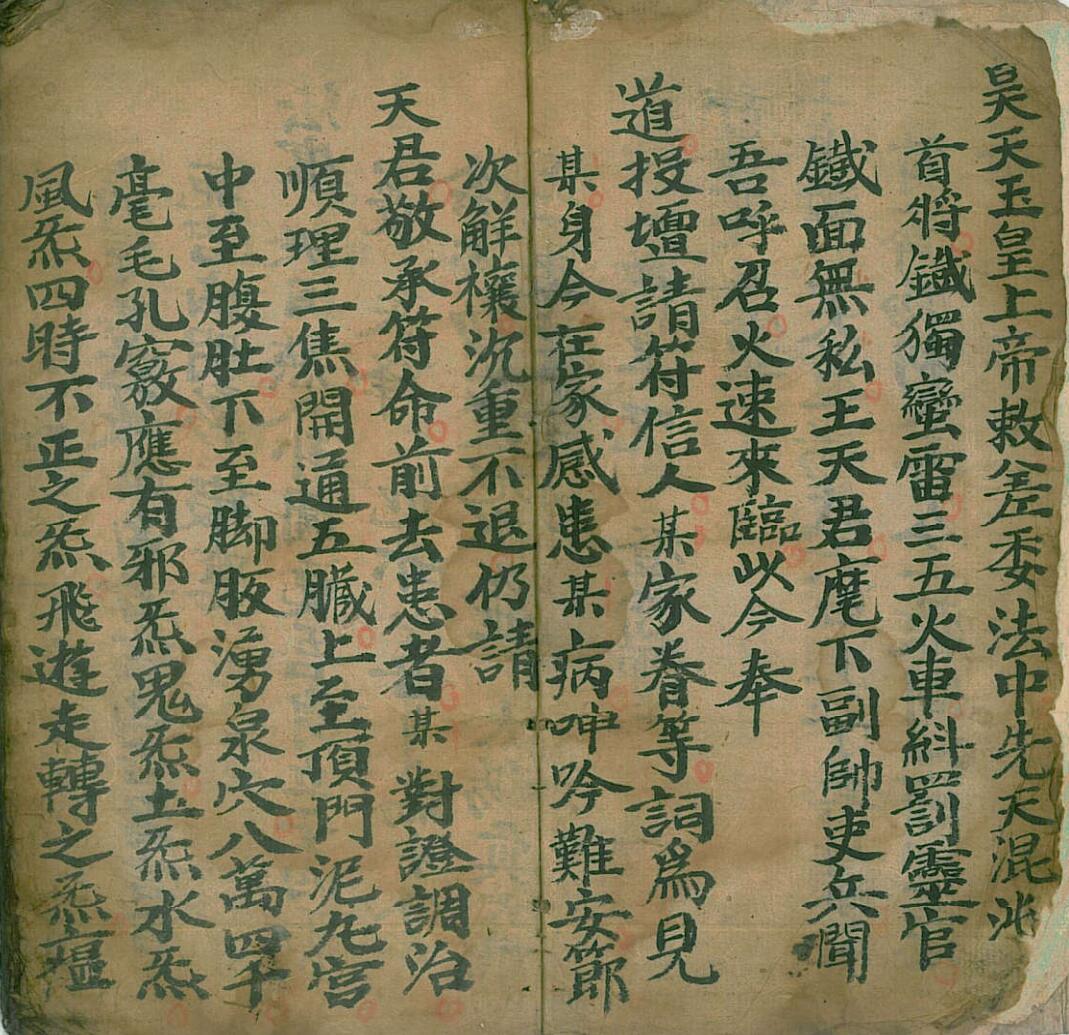 昊天玉皇上帝敕差委法中先天混沌
首将鐵獨蠻雷三五火車糾罰靈官
鐵面無私王天君麾下副帥吏兵聞
吾呼召火速來臨以今奉
道投壇請符信人某家眷等詞為見
某身今在家感患某病呻吟難安節
次解禳沉重不退仍請
天君敬承符命前去患者某對證調治
順理三焦開通五臟上至頂門泥丸宮
中至腹肚下至脚板湧泉穴八萬四千
毫毛孔竅應有邪炁鬼炁土炁水炁
風炁四時不正之炁飛遊走轉之炁瘟